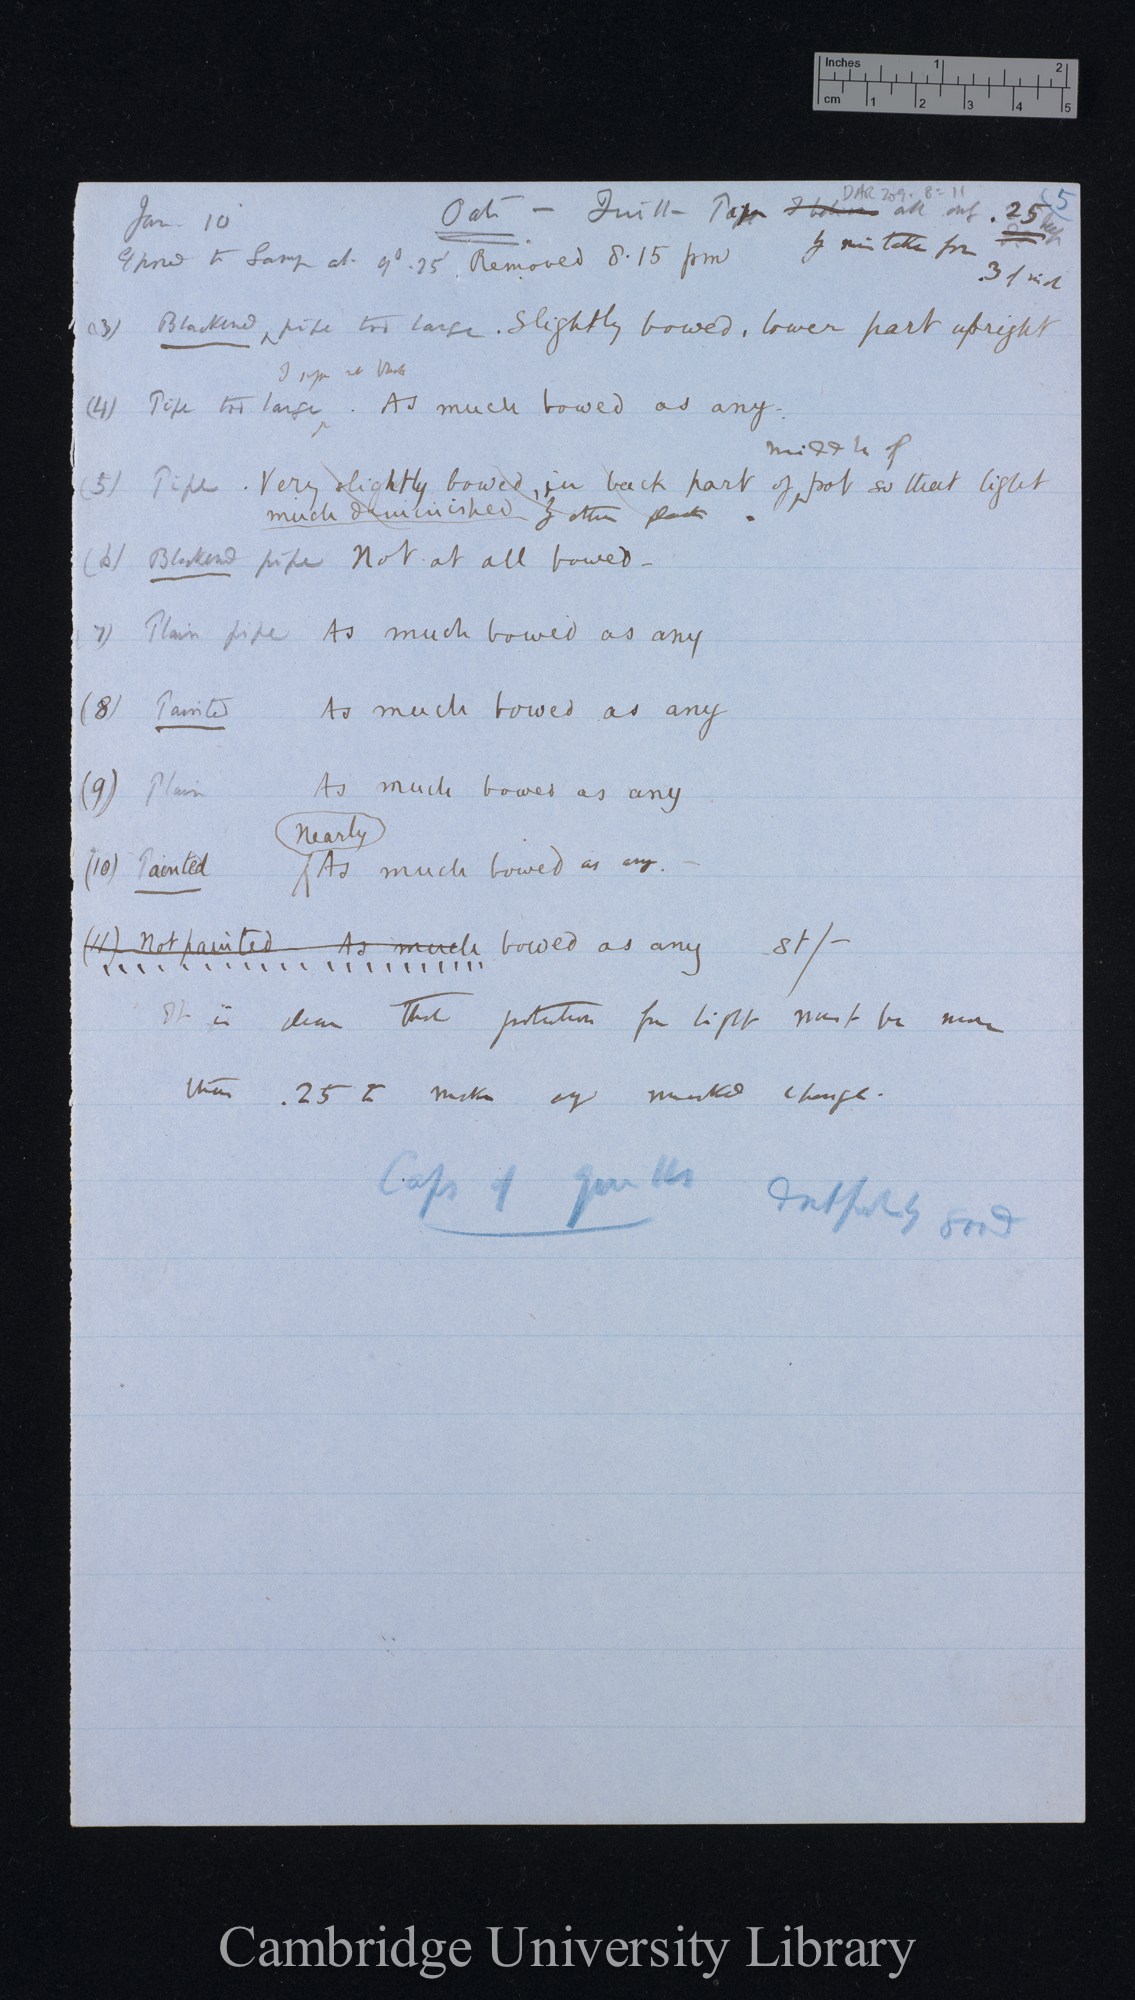 Inches 1 2
cm 1 2 3 4 5
DAR 209. 8: 11
Jan. 10 Oats — Quill- Tops all only .25
by mistake for
.3 of inch
Exposed to Lamp at 9°.25 Removed 8.15 pm
(3) Blackened pipe too large. Slightly bowed, lower part upright
(4) Pipe too large. As much bowed as any.
middle of
(5) Pipe. Very slightly bowed, in back part of pot so that light
much diminished by other
(6) Blackened pipe Not at all bowed —
7) Plain pipe As much bowed as any
(8) Painted As much bowed as any
(9) Plain As much bowed as any
Nearly
(10) Painted As much bowed as any. —
(11) Not painted As much bowed as any st/—
It is clear that protection from light must be more
than .25 to make any marked change.
Caps of quills doubtfully good
Cambridge University Library